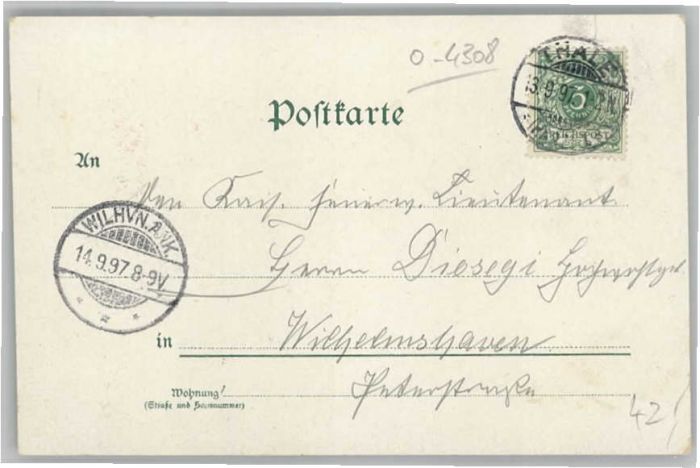 O-4308
THALE
13.9.97
5
REICHSPOST
Postkarte
An
Den Kais. Feuerw. Lieutenant
Herrn Diosegi
WILHVN. ANK.
14.9.97.8-9V
in Wilhelmshaven
Wohnung
(Straße und Hausnummer)
Peterstraße
42